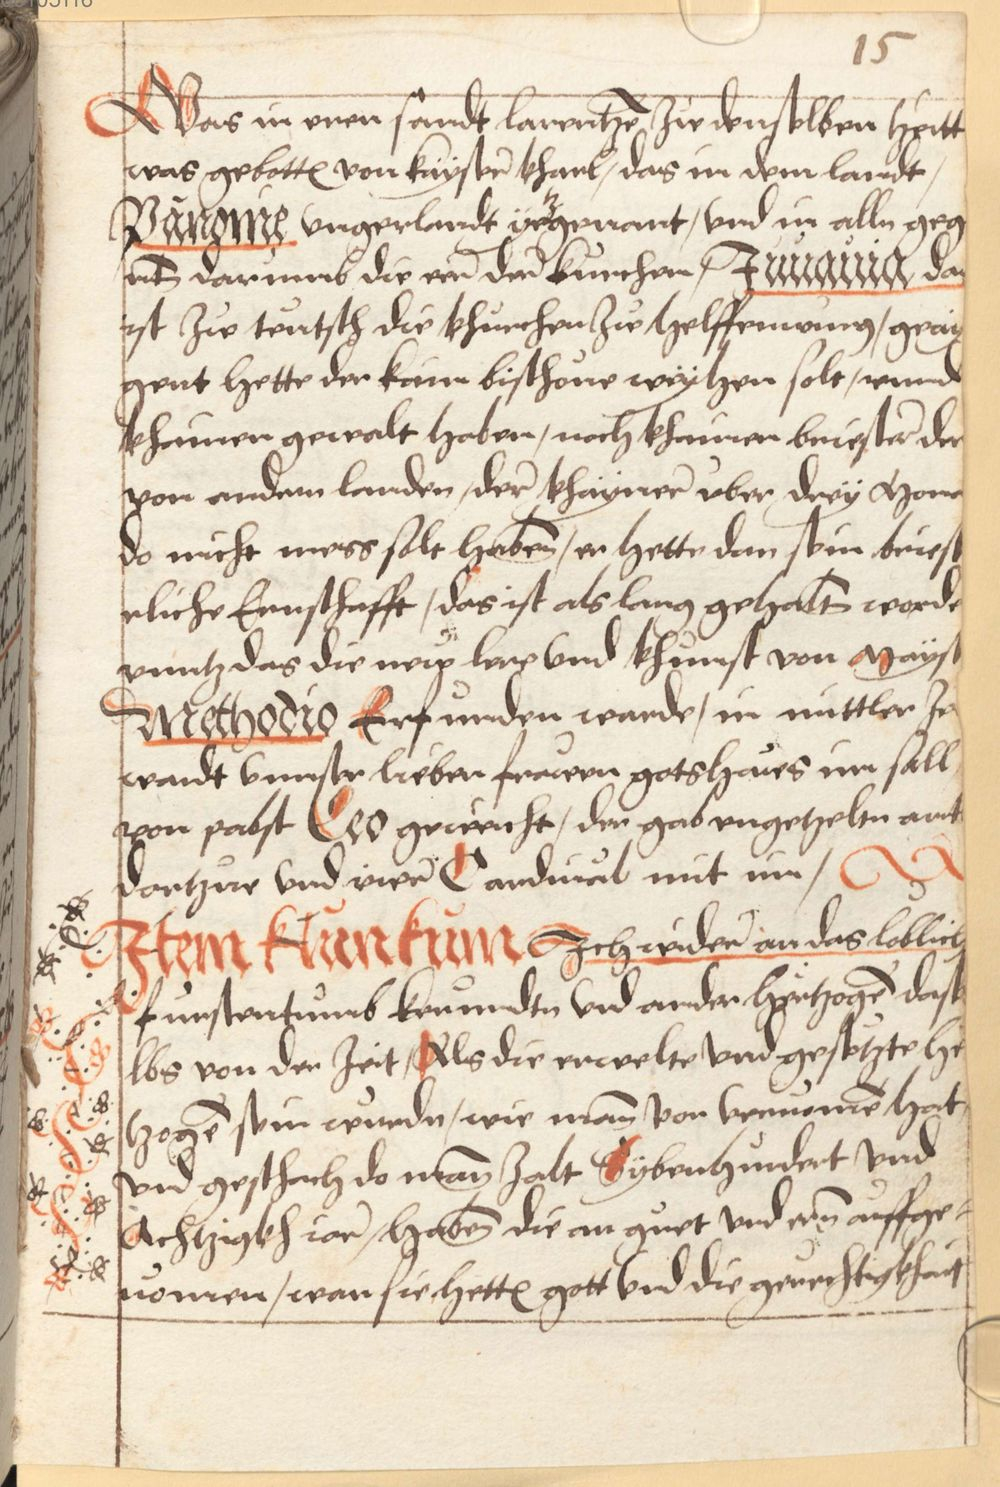 15
Was in eren sandt larentze Zu denselben Zeitt
was gebotten von kayser kharl, das in dem landt,
Panonie vngerlandt yetz genant, vnd in alln geg
nt darumb die eer der kurchen, Juuauia das
ist Zu teutsch die khurchen Zu helffenwurg, geay
gent hette der kain bischoue weyhen solt, vnnd
khainen gewalt haben, noch khainen briester der
von andern landen, der khayner vber drey Mone
do nicht mess solt haben, er hette dan sein briest
erliche Ernschafft, das ist als lang gehaltn worde
vnntz das die new lere vnd khunst von Mayst
Methodio Erfunden warde, in mittler Ze
wardt vnnser lieben frawen gotshaus im sall
von pabst Leo geweicht, der gab engeheln ant
dartzue vnd vier Cardinal mit im,
Item kunkum Ich wider an das loblich
furstentumb kernndtn vnd ander hertzogen dase
lbs von der Zeit, Als die erwelte vnd gesetzte he
tzogen sein wurdn, wie man vor vernomen hat,
vnd geschach do man Zalt Sybenhundert vnd
Achtzigkh iar, haben die an guet vnd ern auffge-
nomen, wan sie hetten gott vnd die gerechtigkhait